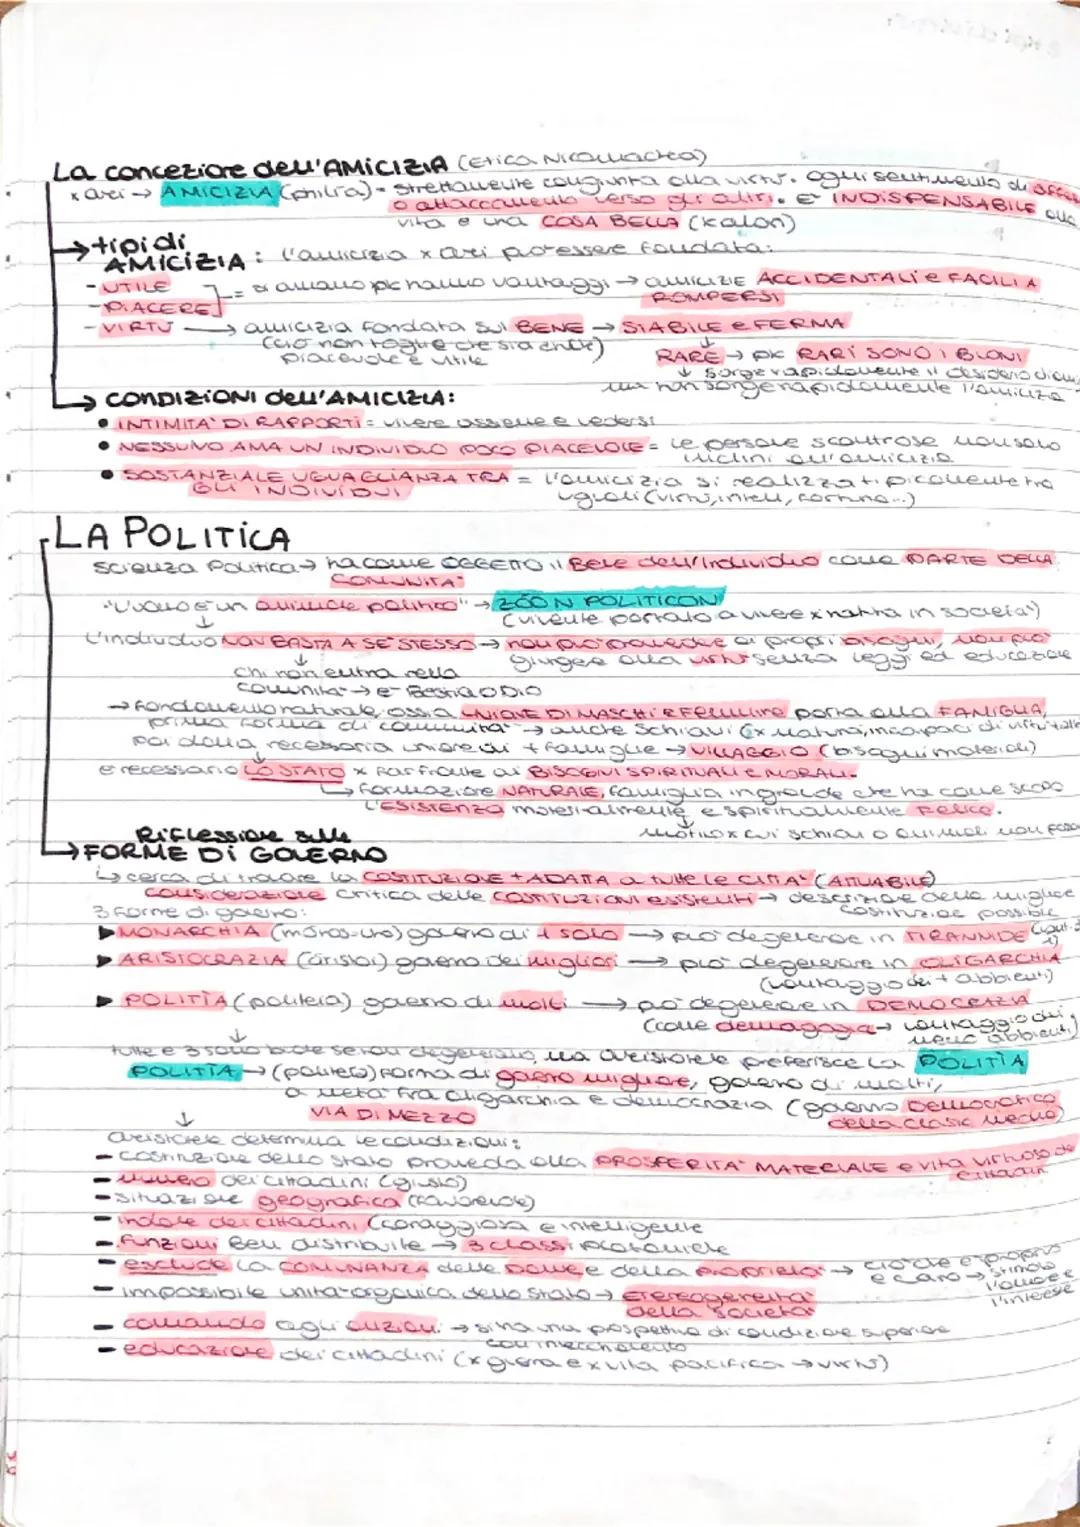 La concezione dell'AMICIZIA (Etica Nicomachea)
x Ari → AMICIZIA (philia) = strettamente congiunta alla virtù. ogni sentimento di
o attaccamento verso gli altri. E' INDISPENSABILE alla
vita e una COSA BELLA (kalon)
→ tipi di
AMICIZIA: l'amicizia x ari può essere fondata:
- UTILE
- PIACERE = si amano pk hanno vantaggi → amicizie ACCIDENTALI e FACILI A
ROMPERSI
- VIRTÙ → amicizia fondata sul BENE → STABILE e FERMA
(ciò non toglie che sia anche)
piacevole e utile
RARE → pk RARI SONO I BUONI
↓ sorge rapidamente il desiderio di
ma non sorge rapidamente l'amicizia
→ CONDIZIONI dell'AMICIZIA:
• INTIMITA' DI RAPPORTI = vivere assieme e vedersi
• NESSUNO AMA UN INDIVIDUO POCO PIACEVOLE = le persone scontrose non sono
inclini all'amicizia
• SOSTANZIALE UGUAGLIANZA TRA = l'amicizia si realizza tipicamente tra
GLI INDIVIDUI uguali (virtù, intell, fortuna...)
LA POLITICA
scienza Politica → ha come OGGETTO il Bene dell'individuo come PARTE DELLA
COMUNITA'
"L'uomo è un animale politico" → ZÓON POLITICON
(vivente portato a vivere x natura in società)
L'individuo NON BASTA A SE STESSO → non può provvedere ai propri bisogni, non può
giungere alla virtù senza leggi ed educazione
↓
chi non entra nella
comunità → è Bestia o DIO
→ Fondamento naturale, ossia UNIONE DI MASCHI e Femmine porta alla FAMIGLIA,
prima forma di comunità → anche Schiavi (x natura, incapaci di virtù
poi dalla necessaria unione di + famiglie → VILLAGGIO (bisogni materiali)
è necessario LO STATO x far fronte ai BISOGNI SPIRITUALI e MORALI.
↳ formazione NATURALE, famiglia in grande che ha come scopo
L'ESISTENZA materialmente e spiritualmente Felice.
↓
motivo x cui schiavi o animali non
Riflessione sulle
→ FORME DI GOVERNO
↳ cerca di trovare la COSTITUZIONE + ADATTA a tutte le CITTA' (ATTUABILE)
considerazione critica delle COSTITUZIONI esistenti → descrizione della miglior
costituzione possibile
3 forme di governo:
▶ MONARCHIA (mónos-uno) governo di 1 solo → può degenerare in TIRANNIDE
▶ ARISTOCRAZIA (áristoi) governo dei migliori → può degenerare in OLIGARCHIA
(vantaggio dei + abbienti)
▶ POLITÌA (politeia) governo di molti → può degenerare in DEMOCRAZIA
(come demagogia → vantaggio dei
meno abbienti)
↓
tutte e 3 sono buone se non degenerano, ma Aristotele preferisce la POLITÌA
POLITÌA → (politeia) Forma di governo migliore, governo di molti,
a metà fra oligarchia e democrazia (governo Democratico
della classe media)
VIA DI MEZZO
↓
Aristotele determina le condizioni:
- costituzione dello stato provveda alla PROSPERITA' MATERIALE e vita virtuosa dei
cittadini
- numero dei cittadini (giusto)
- situazione geografica (favorevole)
- indole dei cittadini (coraggiosa e intelligente
- Funzioni Ben distribuite → 3 classi platoniche
- esclude la COMUNANZA delle Donne e della Proprietà → ciò che è proprio
è caro → stimola
l'amore e
l'interesse
- impossibile unità organica dello stato → ETEROGENEITÀ
della società
- comando agli anziani → si ha una prospettiva di condizione superiore
con invecchiamento
- educazione dei cittadini (x guerra e x vita pacifica → virtù)